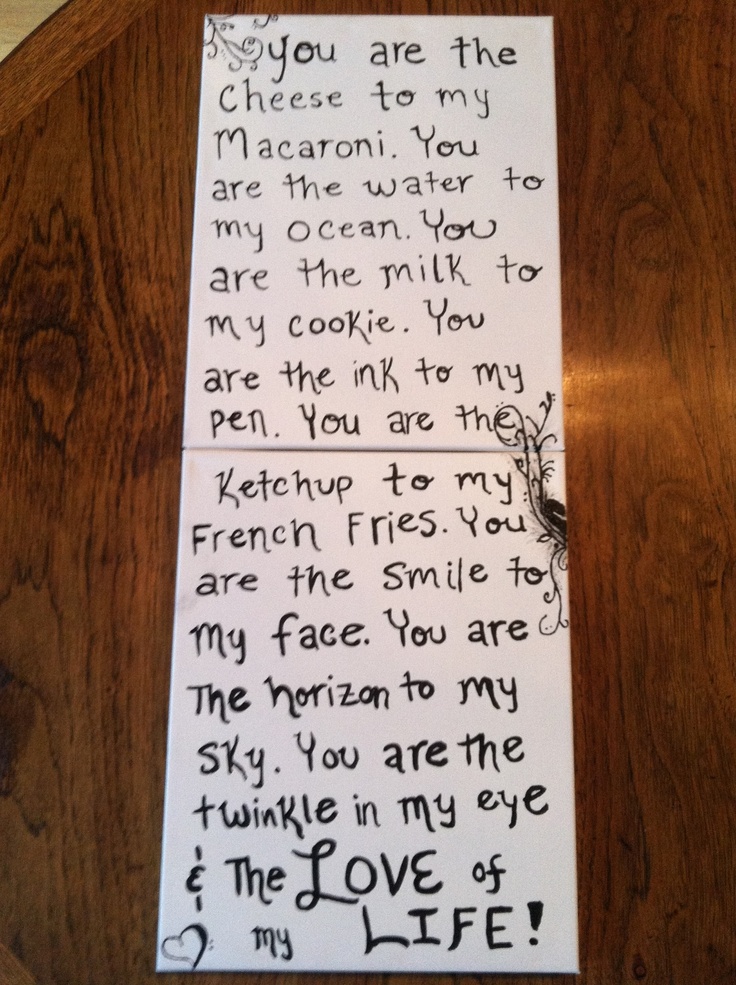 you are the
Cheese to my
Macaroni. You
are the water to
my ocean. You
are the milk to
my cookie. You
are the ink to my
pen. You are the
Ketchup to my
French Fries. You
are the smile to
my face. You are
The horizon to my
sky. You are the
twinkle in my eye
& The LOVE of
my LIFE!